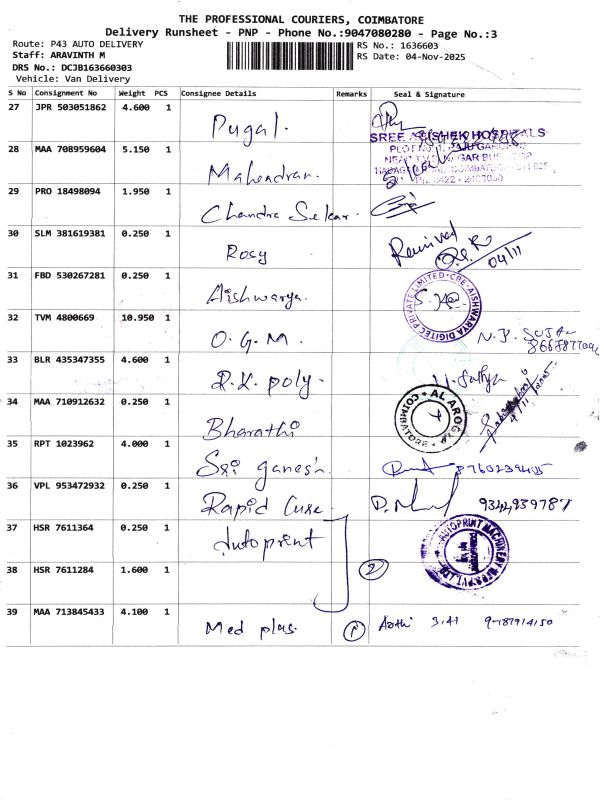 THE PROFESSIONAL COURIERS, COIMBATORE
Delivery Runsheet - PNP - Phone No.:9047080280 - Page No.:3
Route: P43 AUTO DELIVERY
RS No.: 1636603
Staff: ARAVINTH M
RS Date: 04-Nov-2025
DRS No.: DCJB163660303
Vehicle: Van Delivery
S No Consignment No Weight PCS Consignee Details Remarks Seal & Signature
27 JPR 503051862 4.600 1 Pugal.
28 MAA 708959604 5.150 1 Mahendran.
SREE ABISHEK HOSPITALS
29 PRO 18498094 1.950 1 Chandra Sekar.
30 SLM 381619381 0.250 1 Rosy Received 04/11
31 FBD 530267281 0.250 1 Aishwarya.
AISHWARYA DIGITEC PRIVATE LIMITED CBE
32 TVM 4800669 10.950 1 O.G.M.
33 BLR 435347355 4.600 1 R.K. poly. Sathya
34 MAA 710912632 0.250 1 Bharathi
COIMBATORE
35 RPT 1023962 4.000 1 Sri ganesh
36 VPL 953472932 0.250 1 Rapid Cure
37 HSR 7611364 0.250 1 Autoprint
AUTOPRINT MACHINERY
38 HSR 7611284 1.600 1 2
39 MAA 713845433 4.100 1 Med plus. 1 Aarthi 3.41